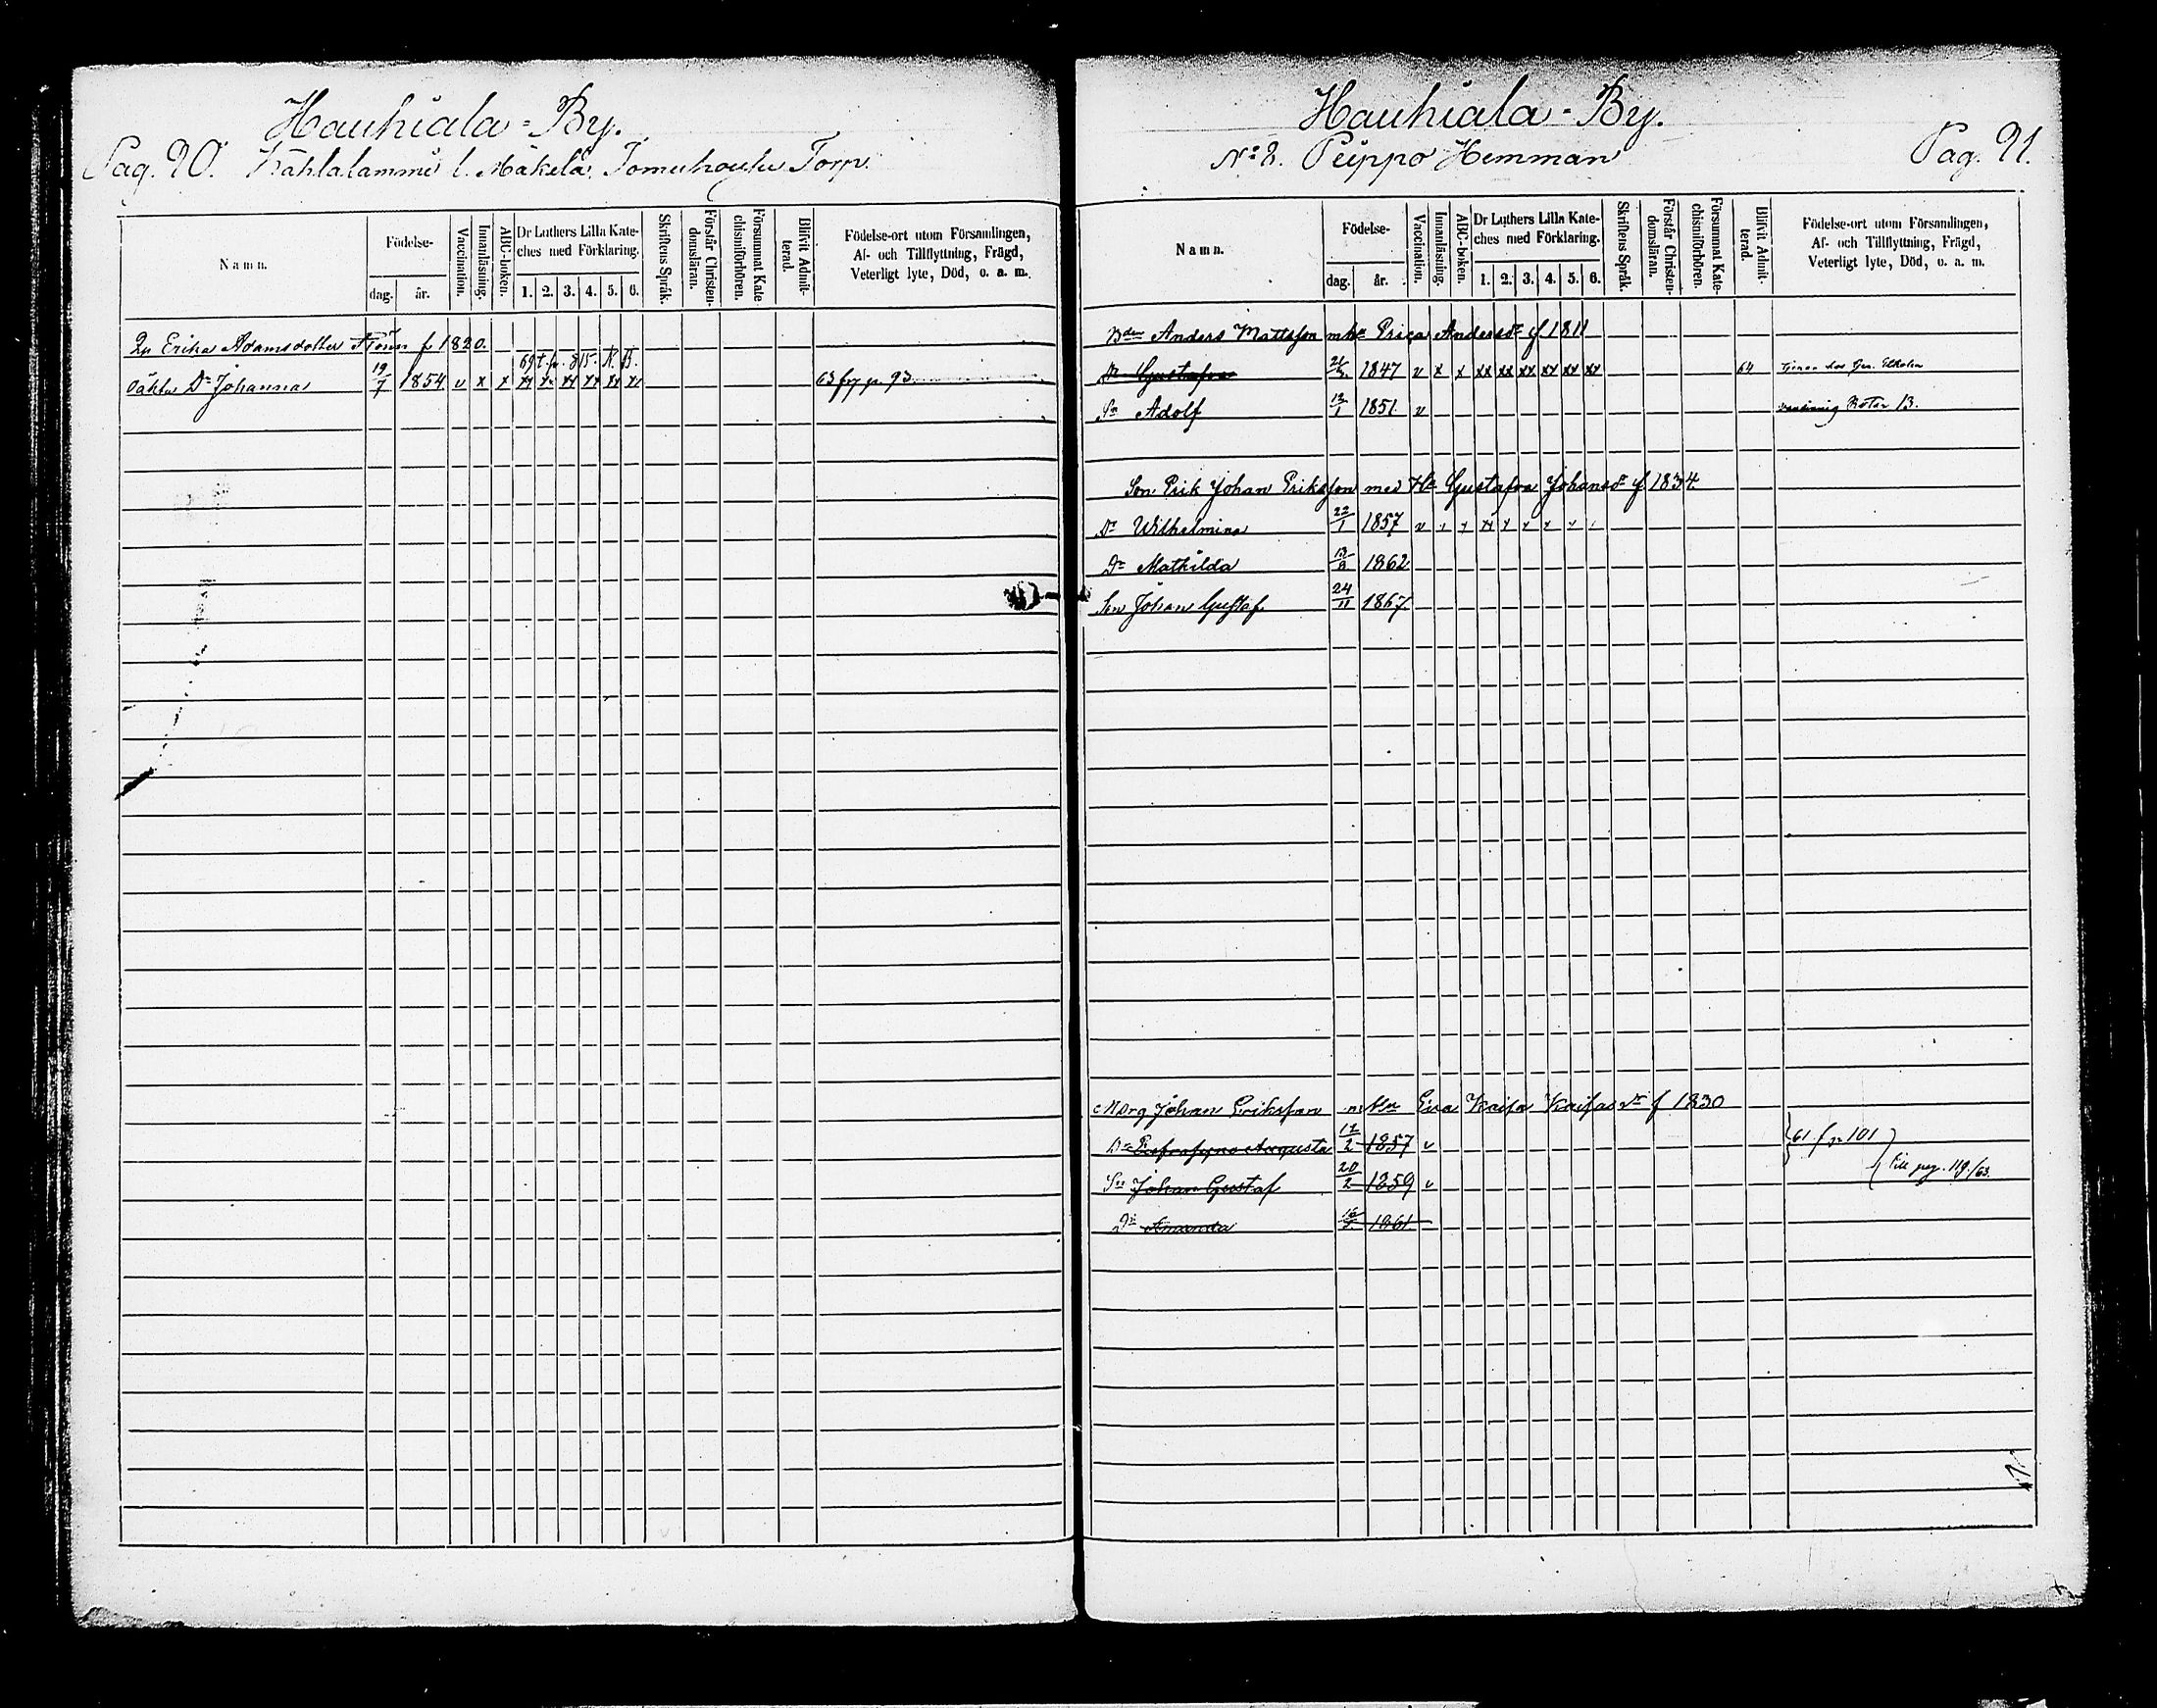 Hauhiala-By.
Pag. 90. Kahlalammi l. Mäkelä Torp.
Namn.
Födelse-
dag. år.
Vaccination.
Innanläsning.
ABC-boken.
Dr Luthers Lilla Kate-
ches med Förklaring.
1. 2. 3. 4. 5. 6.
Skriftens Språk.
Förstår Christen-
domsläran.
Försummat Kate-
chismiförhören.
Blifvit Admit-
terad.
Födelse-ort utom Församlingen,
Af- och Tillflyttning, Frägd,
Veterligt lyte, Död, o. a. m.
Erika Adamsdotter f 1820.
Dr Johanna 19/7 1854 v x x xx xx xx xx xx xx 63 fr p. 93
Hauhiala-By.
No 8. Peippo Hemman Pag. 91.
Namn.
Födelse-
dag. år.
Vaccination.
Innanläsning.
ABC-boken.
Dr Luthers Lilla Kate-
ches med Förklaring.
1. 2. 3. 4. 5. 6.
Skriftens Språk.
Förstår Christen-
domsläran.
Försummat Kate-
chismiförhören.
Blifvit Admit-
terad.
Födelse-ort utom Församlingen,
Af- och Tillflyttning, Frägd,
Veterligt lyte, Död, o. a. m.
Bden Anders Mattsson m hu Erica Andersdr f 1811
Dr Gustafva 1847 v x x xx xx xx xx xx xx 64
Sn Adolf 12/1 1851. v Roten 13.
Son Erik Johan Eriksson med Hu Gustafva Johansdr f 1834
Dr Wilhelmina 22/1 1857 v
Dr Mathilda 13/8 1862
Son Johan Gustaf 24/11 1867
Johan Eriksson m hu Eva Kaisa Kaifasdr f 1830
Dr Eufrosyna Augusta 12/2 1857 v 61 fr p 101
Sn Johan Gustaf 20/2 1859 v till pag. 119/63.
Dr Amanda 1861